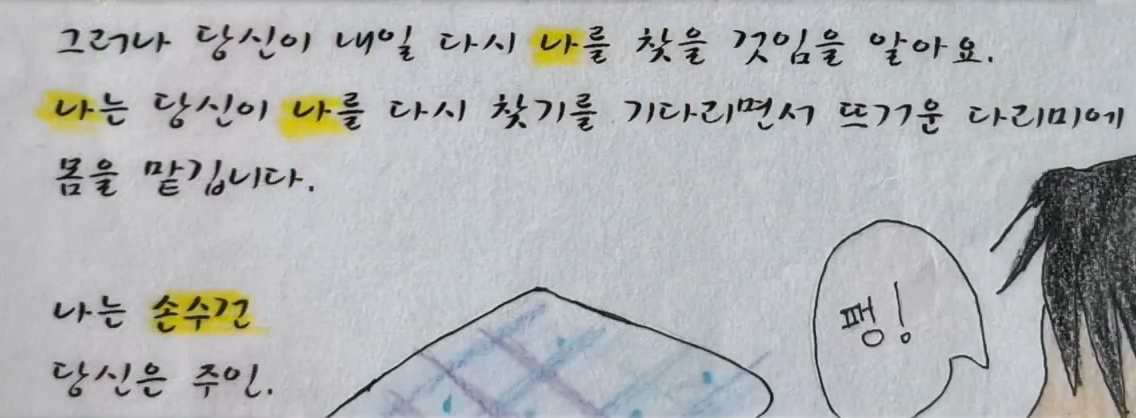 그러나 당신이 내일 다시 나를 찾을 것임을 알아요.
나는 당신이 나를 다시 찾기를 기다리면서 뜨거운 다리미에
몸을 맡깁니다.
나는 손수건
당신은 주인.
펑!